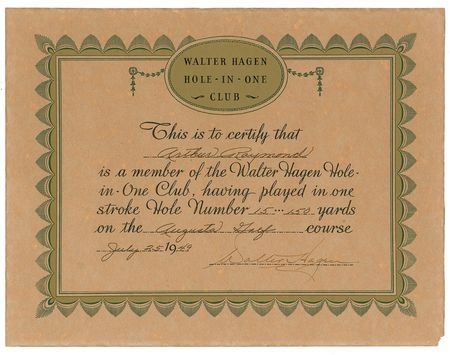 WALTER HAGEN
HOLE-IN-ONE
CLUB
This is to certify that
Arthur Raymond
is a member of the Walter Hagen Hole-
in-One Club, having played in one
stroke Hole Number 15 150 yards
on the Augusta Golf course
July 25 1949
Walter Hagen